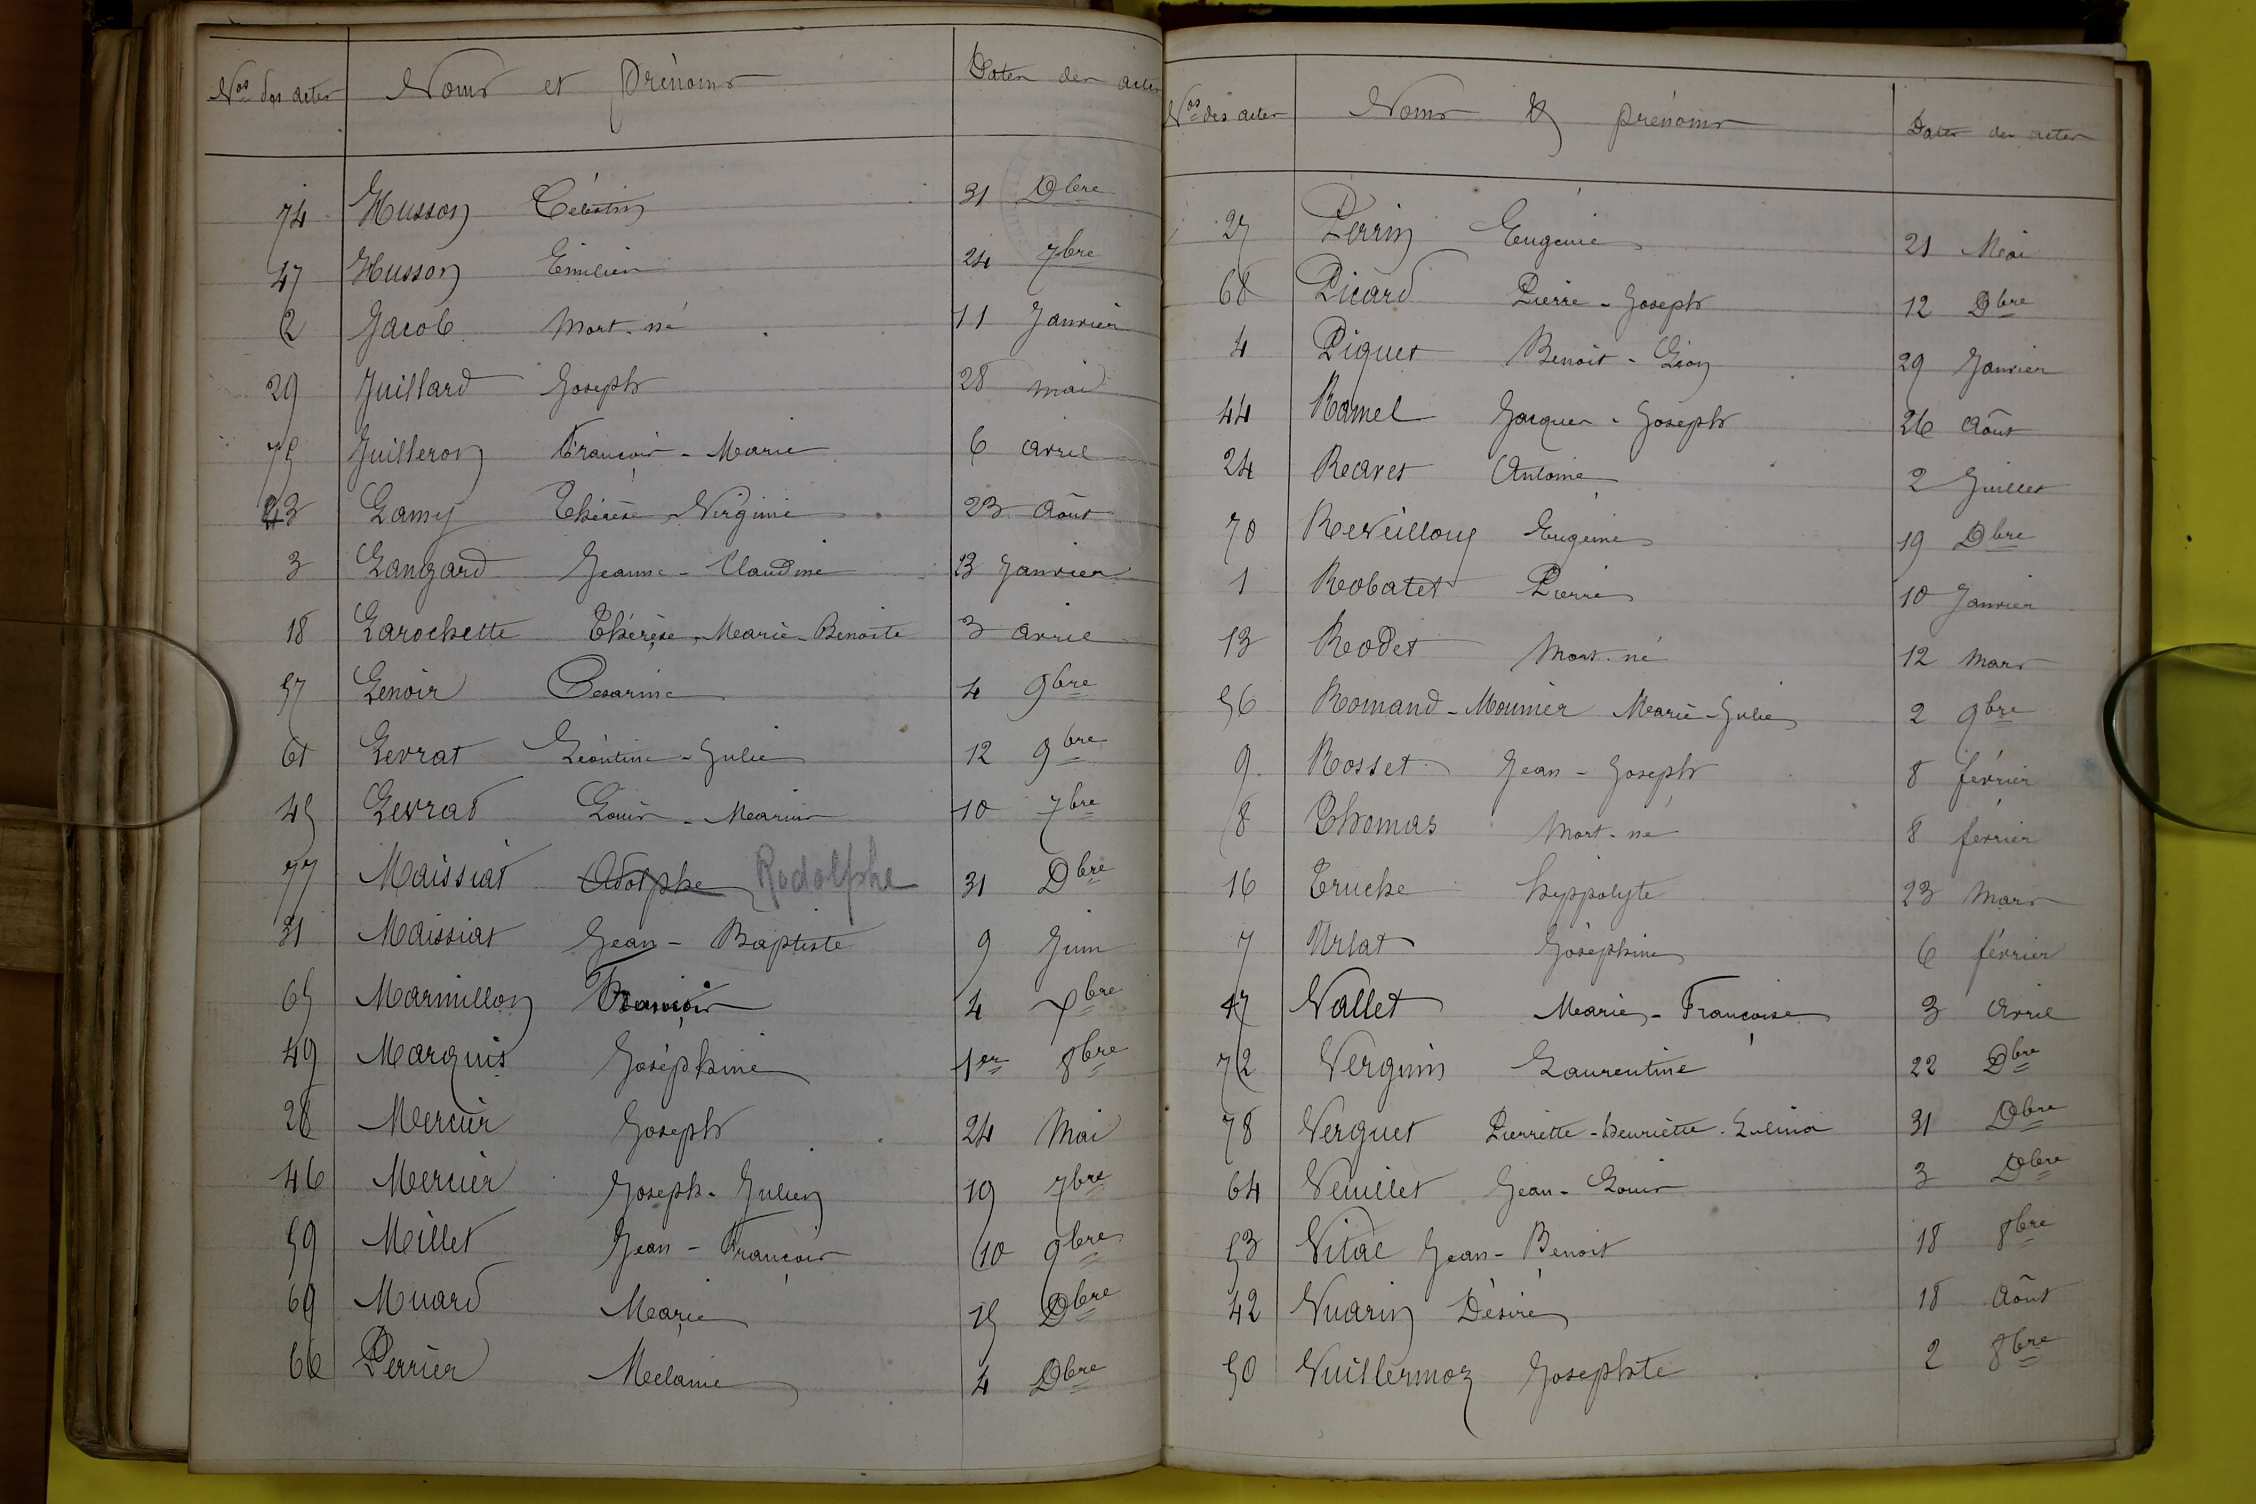 Nos des actes Noms et prénoms Dates des actes
74 Husson Célestin 31 Dbre
47 Husson Emilien 24 7bre
2 Jacob Mort-né 11 Janvier
29 Juillard Joseph 28 mai
75 Juilleron François-Marie 6 avril
43 Lamy Thérèse Virginie 23 Août
3 Lanzard Jeanne-Claudine 23 Janvier
18 Larochette Thérèse-Marie-Benoite 3 avril
57 Lenoir Cesarine 4 9bre
61 Levrat Léontine-Julie 12 9bre
45 Levrat Louis-Marius 10 7bre
77 Maissiat Adolphe Rodolphe 31 Dbre
31 Maissiat Jean-Baptiste 9 Juin
65 Marmillon François 4 Xbre
49 Marquis Joséphine 1er 8bre
28 Mercier Joseph 24 Mai
46 Mercier Joseph-Julien 19 7bre
59 Millet Jean-François 10 9bre
69 Muard Marie 15 Dbre
66 Perrier Melanie 4 Dbre
Nos des actes Noms & prénoms Dates des actes
27 Perrin Eugénie 21 Mai
68 Picard Pierre-Joseph 12 Dbre
4 Piquet Benoit-Léon 29 Janvier
44 Ramel Jacques-Joseph 26 Août
24 Ravet Antoine 2 Juillet
70 Reveilloux Eugénie 19 Dbre
1 Robatet Pierre 10 Janvier
13 Rodet Mort-né 12 Mars
56 Romand-Mounier Marie-Julie 2 9bre
9 Rosset Jean-Joseph 8 février
8 Thomas Mort-né 8 février
16 Truche hyppolyte 23 Mars
7 Urlat Joséphine 6 février
17 Vallet Marie-Françoise 3 Avril
72 Verguin Laurentine 22 Dbre
78 Verguet Pierrette-henriette-Zulina 31 Dbre
64 Veuillet Jean-Louis 3 Dbre
53 Vital Jean-Benoit 18 8bre
42 Vuarin Désiré 18 Août
50 Vuillermoz Josephte 2 8bre